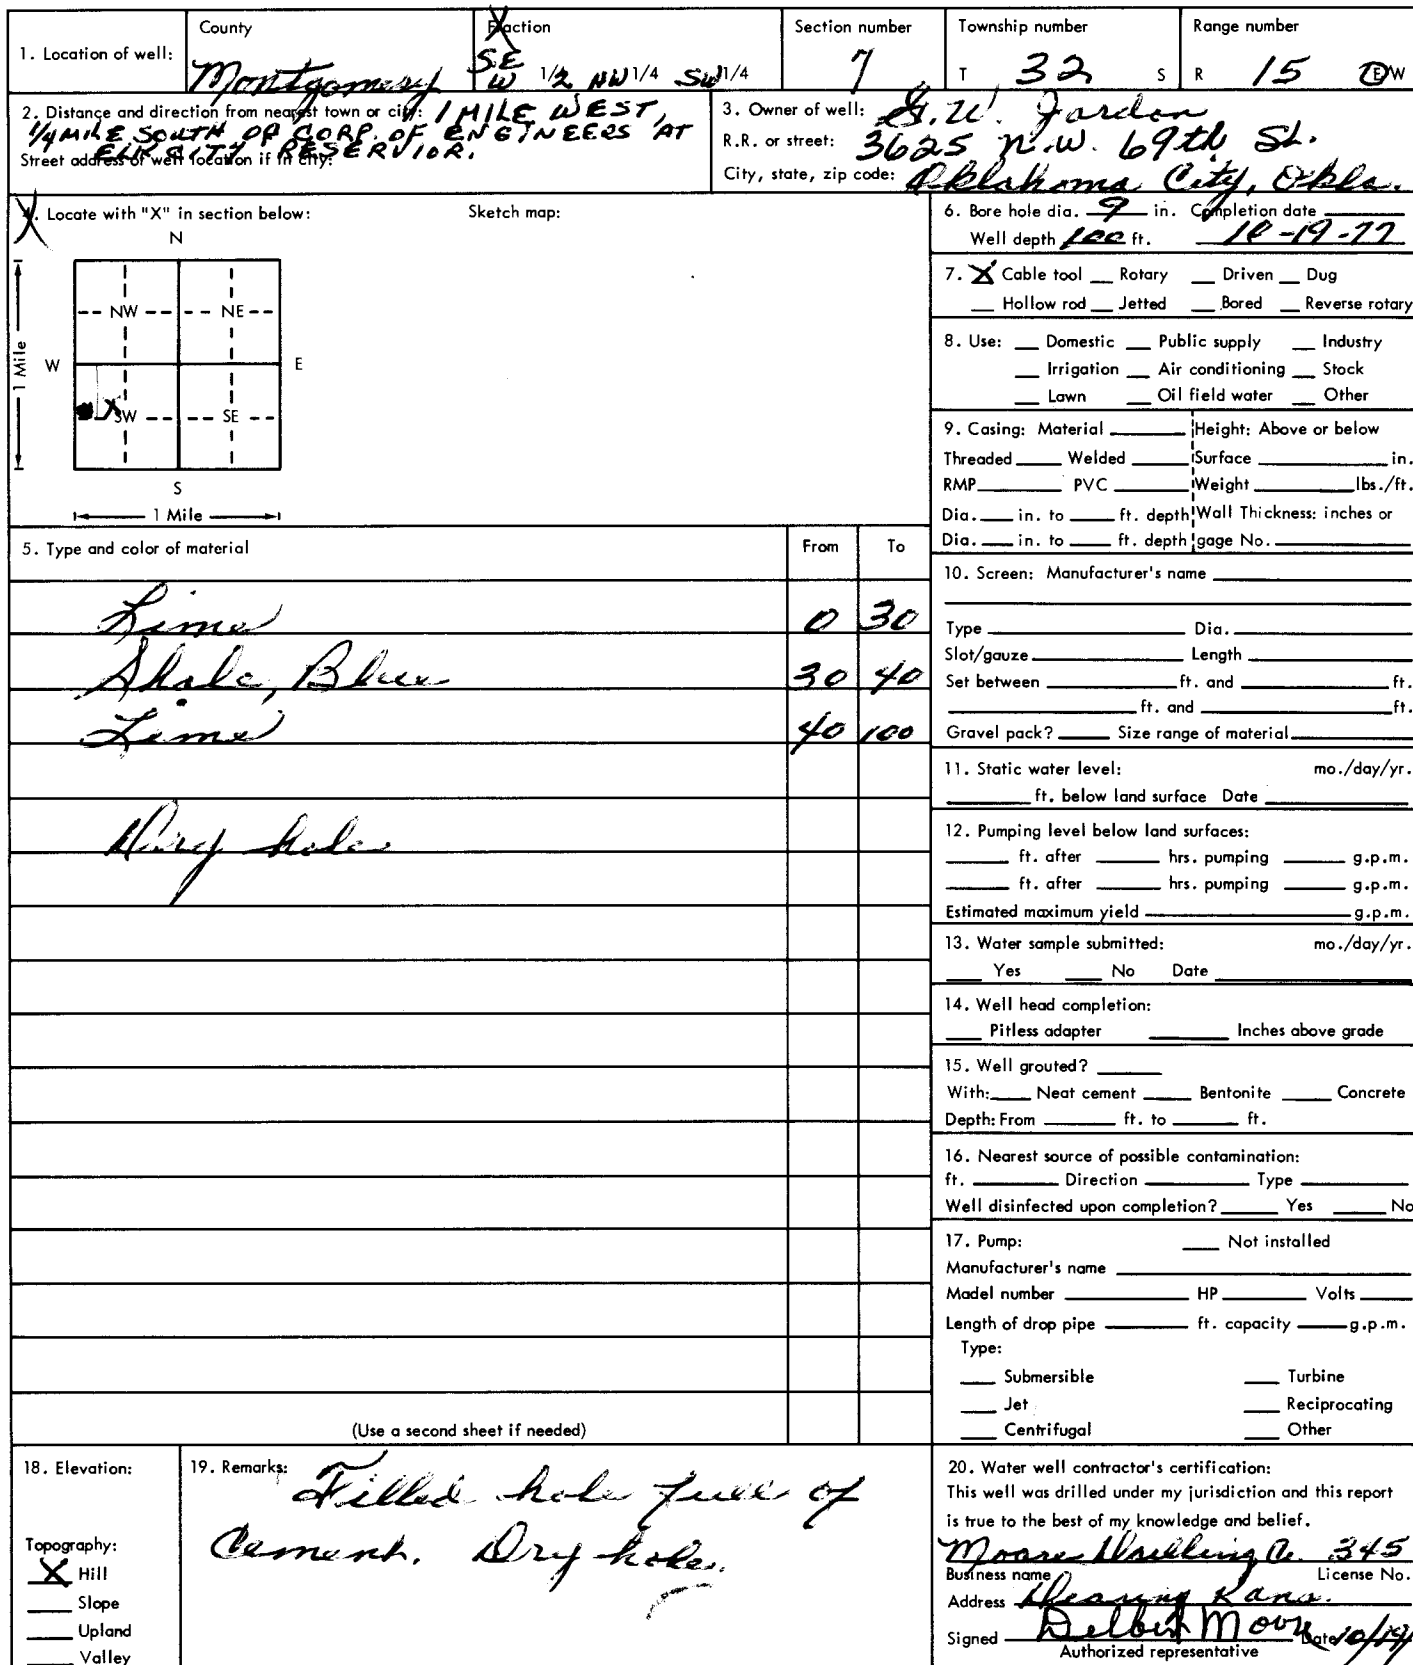 County Fraction Section number Township number Range number
1. Location of well: Montgomery SE W 1/2 NW 1/4 SW 1/4 7 T 32 S R 15 E W
2. Distance and direction from nearest town or city: 1 MILE WEST,
1/4 MILE SOUTH OF CORP. OF ENGINEERS AT
ELK CITY RESERVIOR.
Street address of well location if in city:
3. Owner of well: G.W. Jordon
R.R. or street: 3625 N.W. 69th St.
City, state, zip code: Oklahoma City, Okla.
4. Locate with "X" in section below: Sketch map:
N
NW NE
W E
X SW SE
S
1 Mile
1 Mile
5. Type and color of material From To
Lime 0 30
Shale, Blue 30 40
Lime 40 100
Dry hole
(Use a second sheet if needed)
6. Bore hole dia. 9 in. Completion date
Well depth 100 ft. 10-19-77
7. X Cable tool Rotary Driven Dug
Hollow rod Jetted Bored Reverse rotary
8. Use: Domestic Public supply Industry
Irrigation Air conditioning Stock
Lawn Oil field water Other
9. Casing: Material Height: Above or below
Threaded Welded Surface in.
RMP PVC Weight lbs./ft.
Dia. in. to ft. depth Wall Thickness: inches or
Dia. in. to ft. depth gage No.
10. Screen: Manufacturer's name
Type Dia.
Slot/gauze Length
Set between ft. and ft.
ft. and ft.
Gravel pack? Size range of material
11. Static water level: mo./day/yr.
ft. below land surface Date
12. Pumping level below land surfaces:
ft. after hrs. pumping g.p.m.
ft. after hrs. pumping g.p.m.
Estimated maximum yield g.p.m.
13. Water sample submitted: mo./day/yr.
Yes No Date
14. Well head completion:
Pitless adapter Inches above grade
15. Well grouted?
With: Neat cement Bentonite Concrete
Depth: From ft. to ft.
16. Nearest source of possible contamination:
ft. Direction Type
Well disinfected upon completion? Yes No
17. Pump: Not installed
Manufacturer's name
Model number HP Volts
Length of drop pipe ft. capacity g.p.m.
Type:
Submersible Turbine
Jet Reciprocating
Centrifugal Other
18. Elevation:
Topography:
X Hill
Slope
Upland
Valley
19. Remarks: Filled hole full of
Cement. Dry hole.
20. Water well contractor's certification:
This well was drilled under my jurisdiction and this report
is true to the best of my knowledge and belief.
Moore Drilling Co. 345
Business name License No.
Address Dearing Kans.
Signed Delbert Moore Date 10/19/
Authorized representative